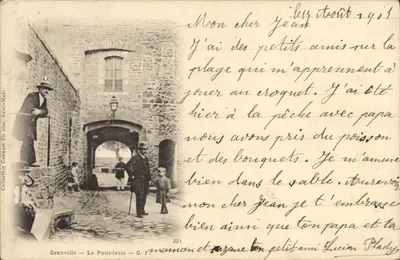 Août 1901
Mon cher Jean
J'ai des petits amis sur la
plage qui m'apprennent à
jouer au croquet. J'ai été
hier à la pêche avec papa
nous avons pris du poisson
et des bouquets. Je m'amuse
bien dans le sable. Au revoir
mon cher Jean je t'embrasse
bien ainsi que ton papa et ta
maman et ton petit ami Lucien
Collection Germain fils aîné, Saint-Malo
221
Granville — Le Pont-levis — G. F.